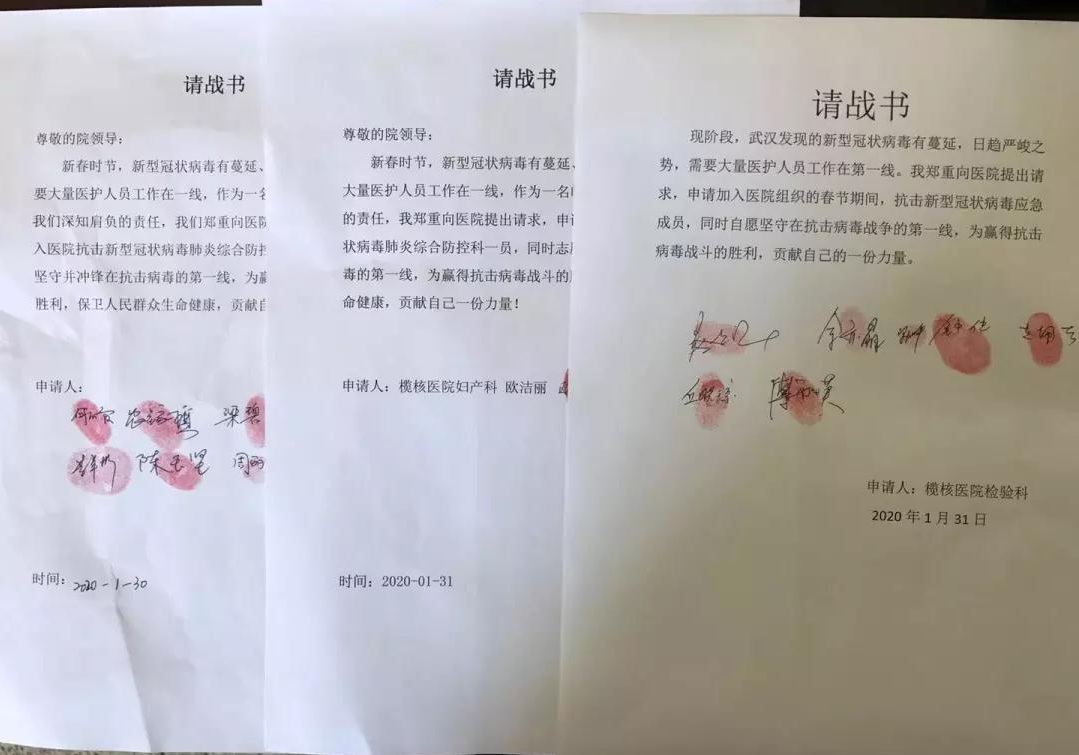 请战书
尊敬的院领导：
新春时节，新型冠状病毒有蔓延、
要大量医护人员工作在一线，作为一名
我们深知肩负的责任，我们郑重向医院
入医院抗击新型冠状病毒肺炎综合防控
坚守并冲锋在抗击病毒的第一线，为赢
胜利，保卫人民群众生命健康，贡献自
申请人：
梁碧
陈玉坚 周丽
时间：2020-1-30
请战书
尊敬的院领导：
新春时节，新型冠状病毒有蔓延、
大量医护人员工作在一线，作为一名
的责任，我郑重向医院提出请求，申请
状病毒肺炎综合防控科一员，同时志愿
毒的第一线，为赢得抗击病毒战斗的
命健康，贡献自己一份力量！
申请人：榄核医院妇产科 欧洁丽
时间：2020-01-31
请战书
现阶段，武汉发现的新型冠状病毒有蔓延，日趋严峻之
势，需要大量医护人员工作在第一线。我郑重向医院提出请
求，申请加入医院组织的春节期间，抗击新型冠状病毒应急
成员，同时自愿坚守在抗击病毒战争的第一线，为赢得抗击
病毒战斗的胜利，贡献自己的一份力量。
申请人：榄核医院检验科
2020年1月31日